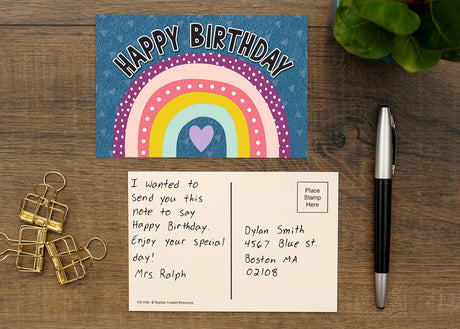 HAPPY BIRTHDAY
I wanted to
send you this
note to say
Happy Birthday.
Enjoy your special
day!
Mrs. Ralph
Place
Stamp
Here
Dylan Smith
4567 Blue st.
Boston MA
02108
© Teacher Created Resources